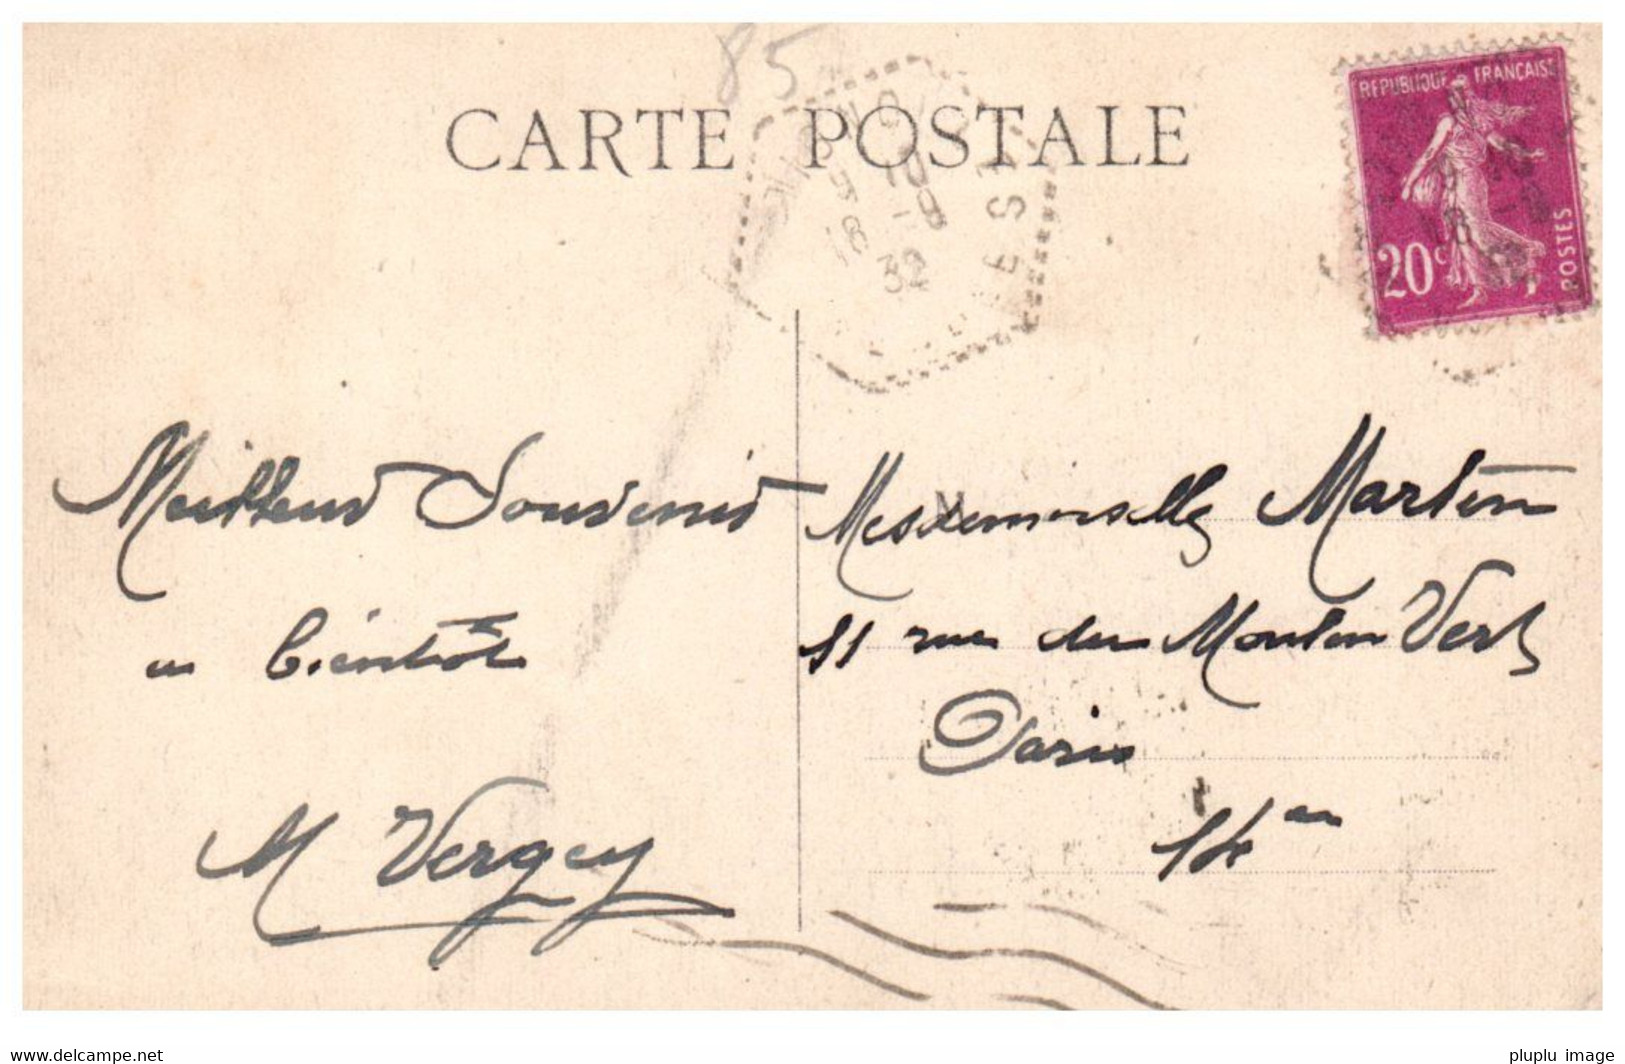 85
CARTE POSTALE
RÉPUBLIQUE FRANÇAISE
20c
POSTES
18
20 -9
32
Meilleurs Souvenirs
a bientôt
M Vergey
Mesdemoiselles Martin
11 rue du Moulin Vert
Paris
14e
www.delcampe.net
pluplu image